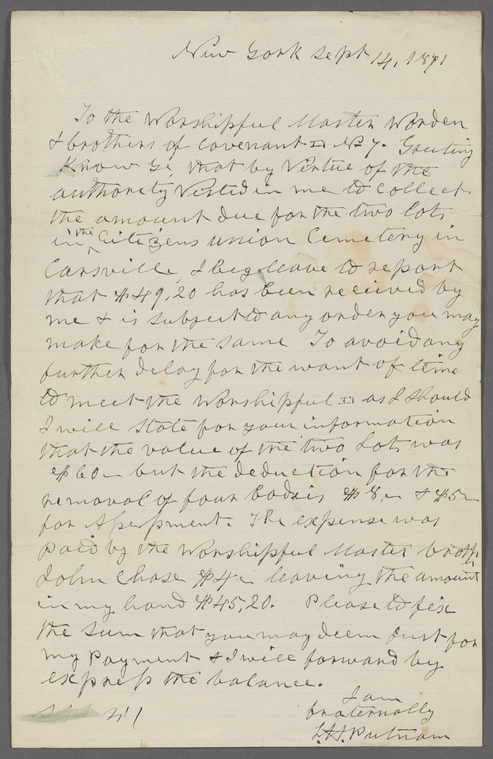 New York Sept 14, 1871
To the Worshipful Master Worden
& brothers of Covenant No 7. Greeting
Know Ye, that by Virtue of the
authorety Vested in me to collect
the amount due for the two lots
in the Citizens union Cemetery in
Carsville, I beg leave to report
that $49,20 has been received by
me & is subject to any order you may
make for the same To avoid any
further delay for the want of time
to meet the Worshipful as I should
I will state for your information
that the value of the two Lots was
$60— but the deduction for the
removal of four bodies $8,— & $5—
for Assessment. The expense was
paid by the Worshipful Master broth
John Chase $4— leaving the amount
in my hand $45,20. Please to fix
the sum that you may deem Just for
my payment & I will forward by
express the balance.
I am
fraternally
Putnam